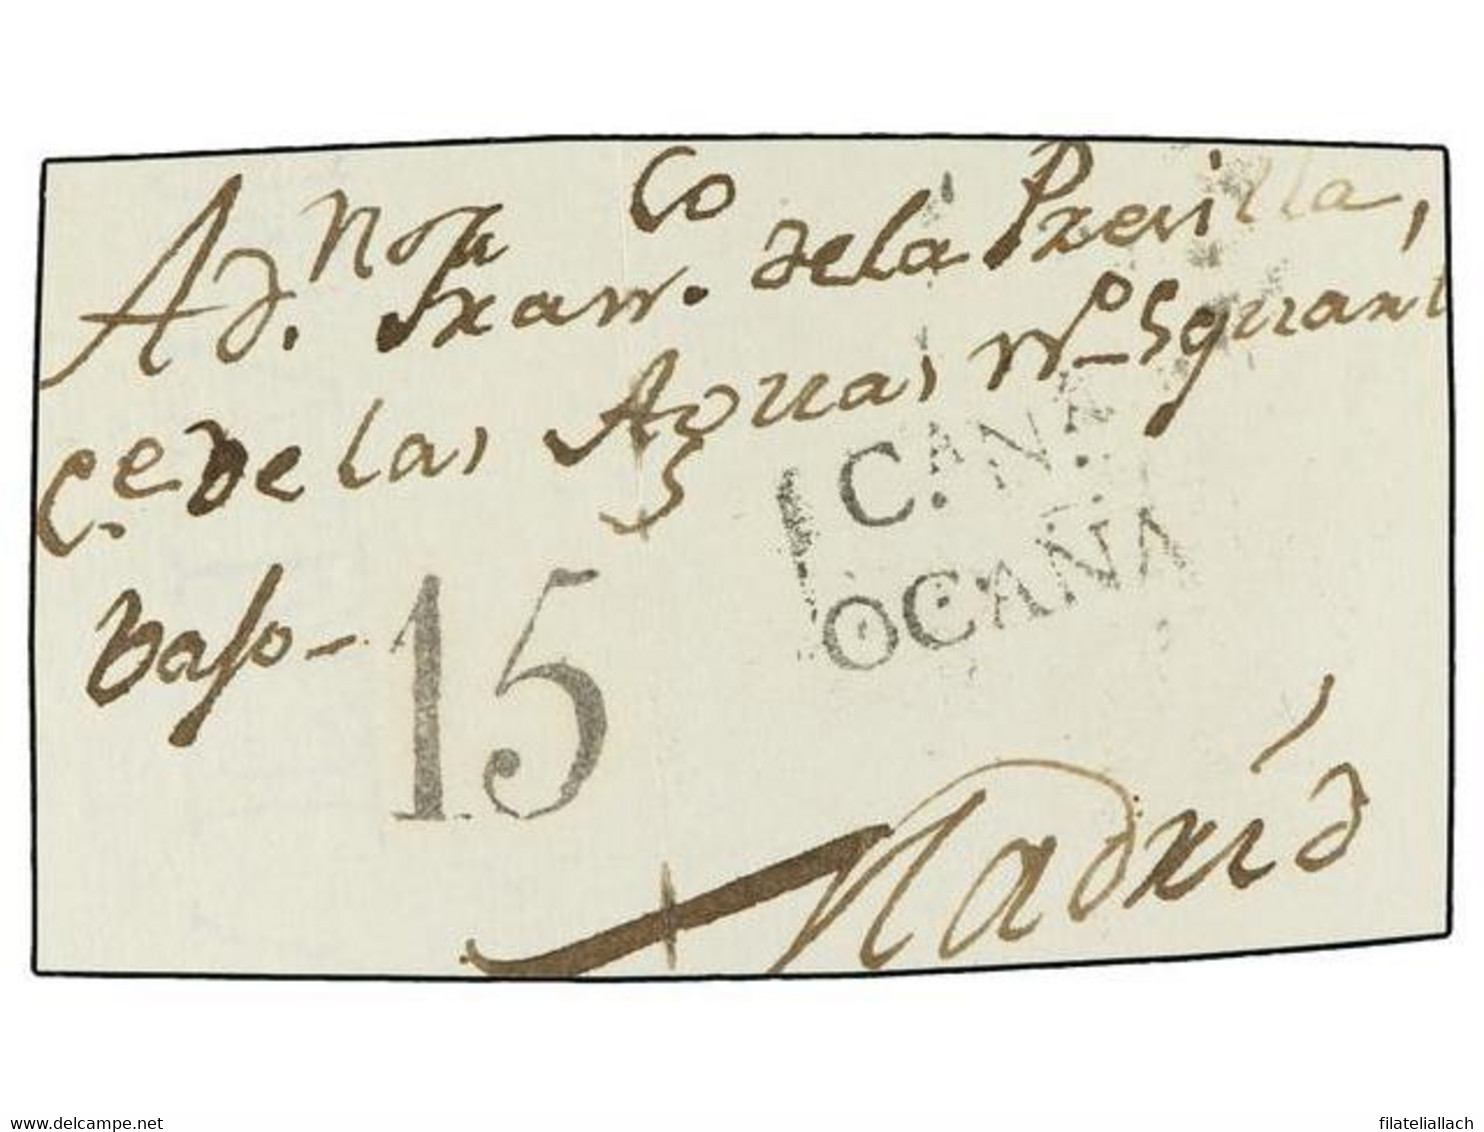 A D.ⁿ Fran.ᶜᵒ de la Previlla,
C.ᵉ de las Aguas, nº 5 quart
bajo -
15
C.ANA
OCAÑA
Madrid
www.delcampe.net
filateliallach